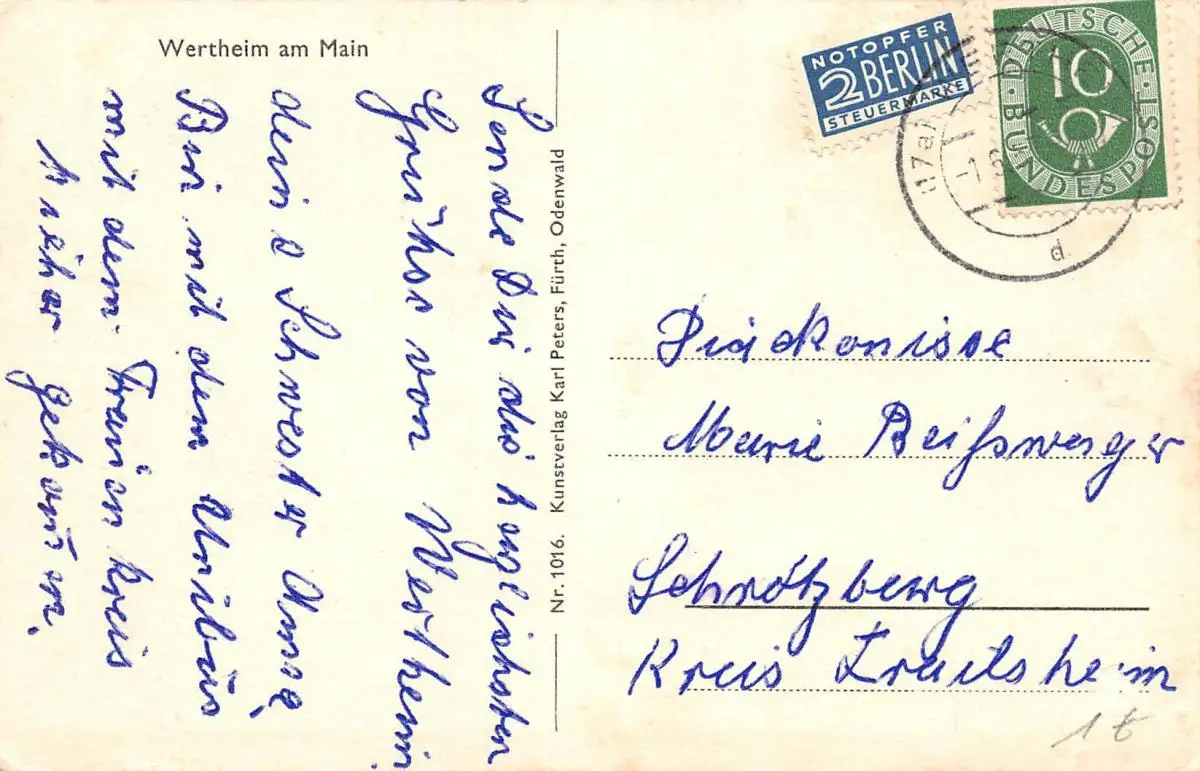 Wertheim am Main
Sende Dir die herzlichsten
Grüße von Wertheim
deine Schwester Anna,
Bin mit dem Omnibus
mit dem Frauenkreis
hieher gekommen.
Nr. 1016. Kunstverlag Karl Peters, Fürth, Odenwald
NOTOPFER
2 BERLIN
STEUERMARKE
DEUTSCHE BUNDESPOST
10
(17a)
-1.6
d
Diakonisse
Marie Beißwenger
Schrotzberg
Kreis Crailsheim
1 t